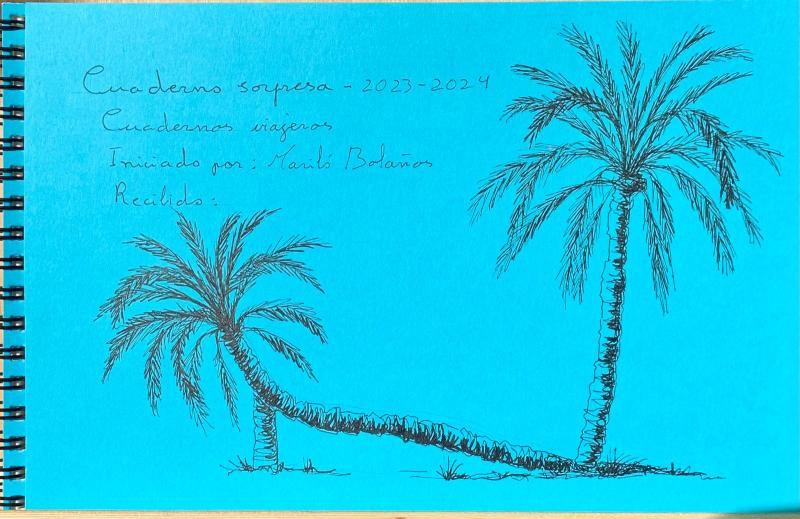 Cuaderno sorpresa - 2023-2024
Cuadernos viajeros
Iniciado por: Mariló Bolaños
Recibido: